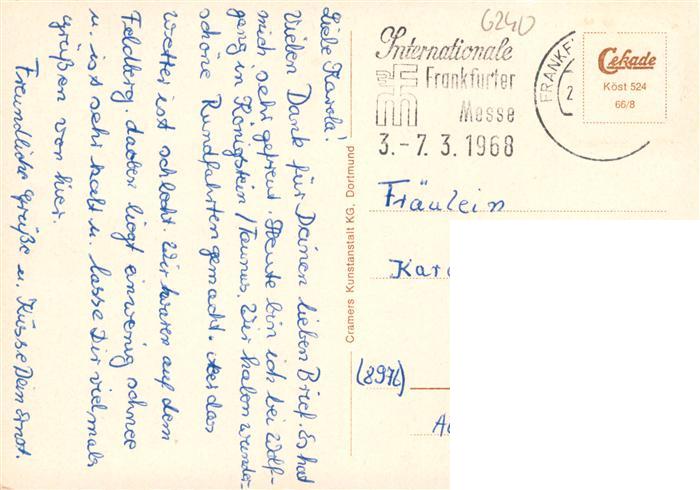 Liebe Karola!
Vielen Dank für Deinen lieben Brief. Es hat
mich sehr gefreut. Heute bin ich bei Wolf-
gang in Königstein/Taunus. Wir haben wunder-
schöne Rundfahrten gemacht. das
Wetter ist schlecht. Wir waren auf dem
Feldberg. da liegt ein wenig schnee
u. ist sehr kalt u. lasse Dir vielmals
grüßen von hier.
Freundliche Grüße u. Küsse Dein Ernst.
Cramers Kunstanstalt KG, Dortmund
6240
Internationale
Frankfurter
Messe
3.-7. 3. 1968
FRANKF
2
Cekade
Köst 524
66/8
Fräulein
Karo
(8976)